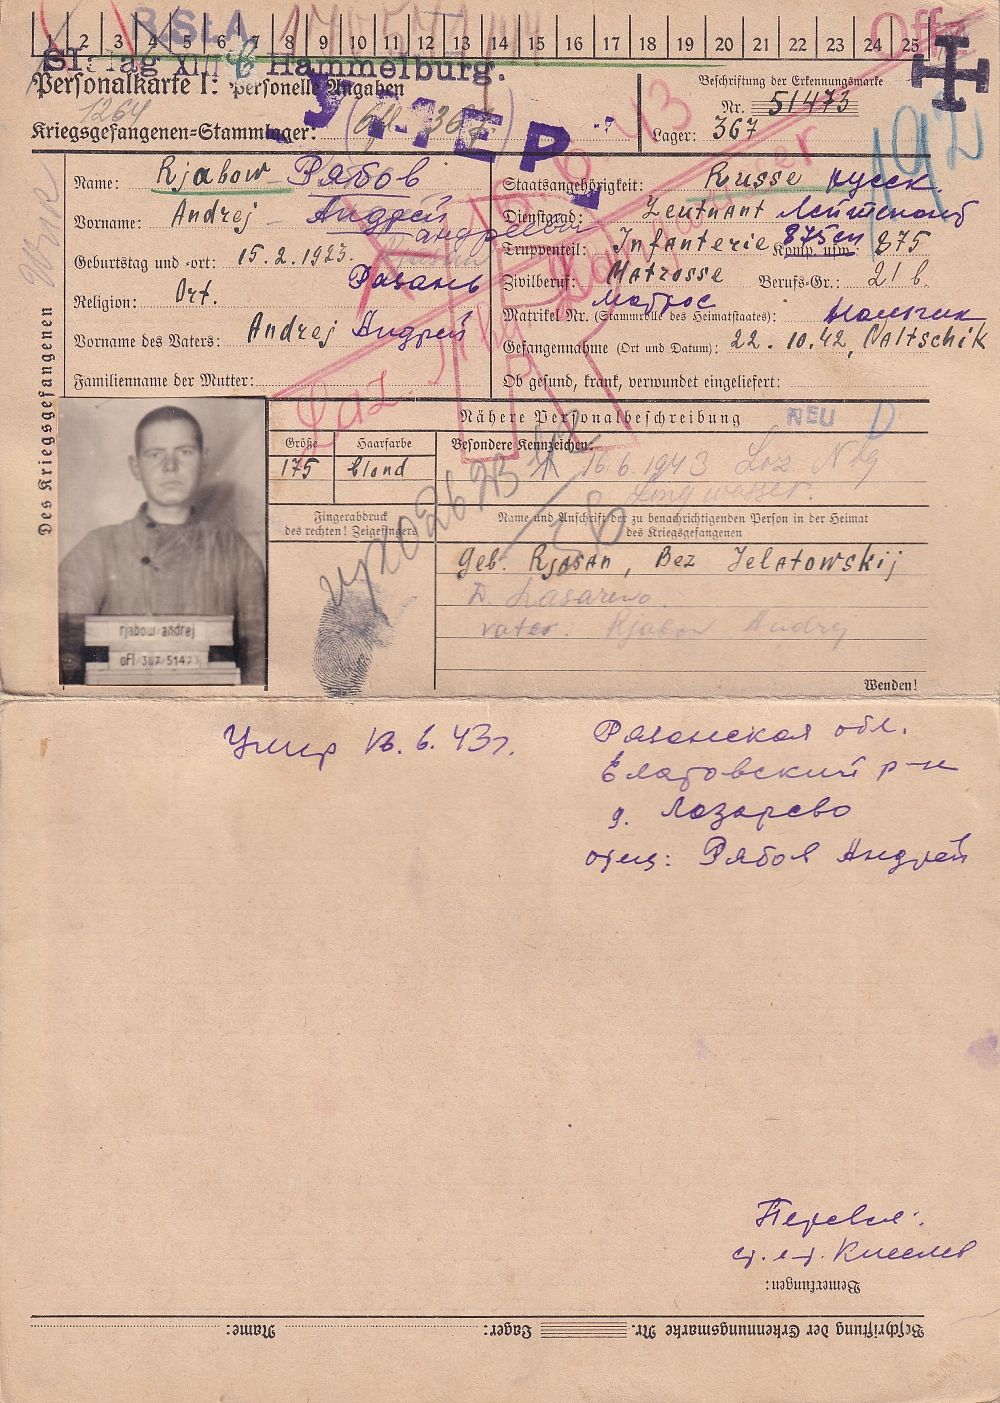 1 2 3 4 5 6 7 8 9 10 11 12 13 14 15 16 17 18 19 20 21 22 23 24 25
Hammelburg.
Personalkarte I: Personelle Angaben
1264
Kriegsgefangenen=Stammlager: 367
УМЕР
Beschriftung der Erkennungsmarke
Nr. 51473
Lager: 367
Des Kriegsgefangenen
Name: Rjabow Рябов
Vorname: Andrej Андрей
Андреевич
Geburtstag und =ort: 15.2.1923.
Рязань
Religion: Ort.
Vorname des Vaters: Andrej Андрей
Familienname der Mutter:
Staatsangehörigkeit: Russe русск.
Dienstgrad: Leutnant Лейтенант
Truppenteil: Infanterie 875сп Komp. usw. 875
Zivilberuf: Matrosse Berufs=Gr.: 21 b.
Матрос
Matrikel Nr. (Stammrolle des Heimatstaates): Нальчик
Gefangennahme (Ort und Datum): 22.10.42, Naltschik
Ob gesund, krank, verwundet eingeliefert:
Nähere Personalbeschreibung
NEU D
Größe Haarfarbe Besondere Kennzeichen:
175 blond
16.6.1943 Laz. Nbg
Langwasser.
Fingerabdruck
des rechten! Zeigefingers
Name und Anschrift der zu benachrichtigenden Person in der Heimat
des Kriegsgefangenen
geb. Rjasan, Bez Jelatowskij
D. Lasarewo.
Vater. Rjabow Andrej
rjabow andrej
ofl 367/51473
Wenden!
Умер 16.6.43г.
Рязанская обл.
Елатовский р-н
д. Лазарево
отец: Рябов Андрей
Перевел:
ст. л-т. Киселев
Bemerkungen:
Beschriftung der Erkennungsmarke Nr. Lager: Name: